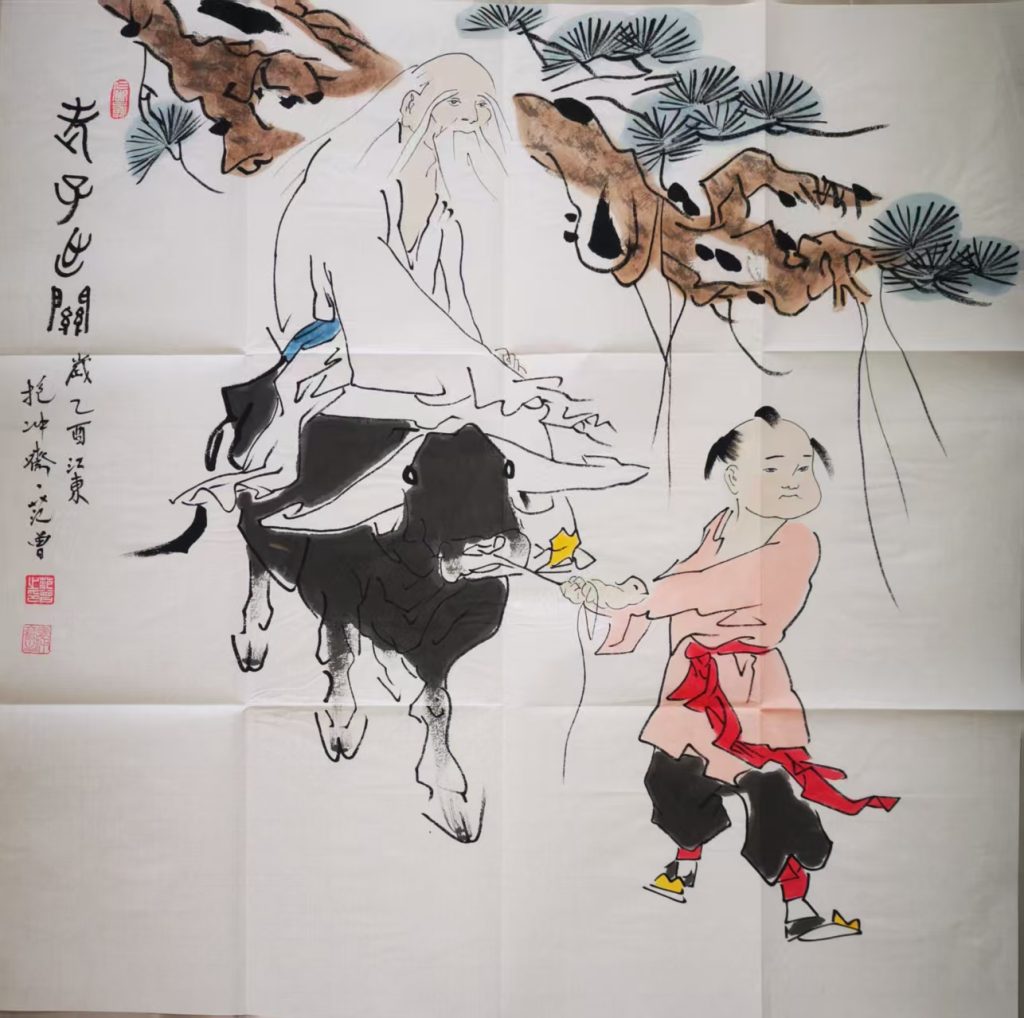 老子出關
歲乙酉江東
抱冲齋范曾